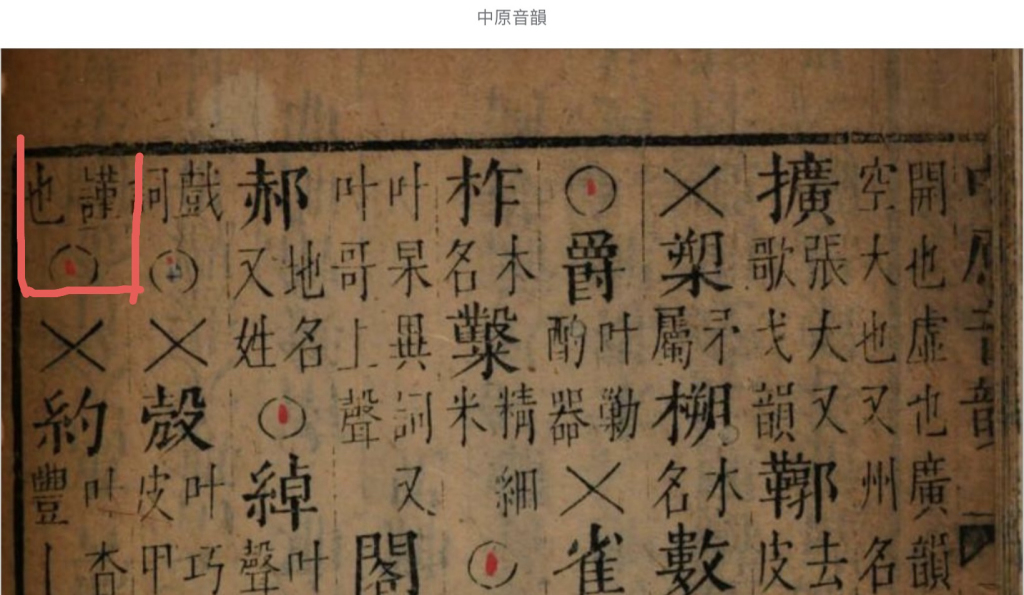 中原音韻
中原音韻
開也虛也廣韻
空大也又州名
擴張大又歌戈韻鞹去皮
×槊矛屬㮶木名數
○爵叶勦酌器×雀
柞木名糳精細米○
叶杲異詞又叶哥上聲閣
郝地名又姓○綽叶聲
戲詞○×殻叶巧皮甲
謹也○×約叶杳豐丨